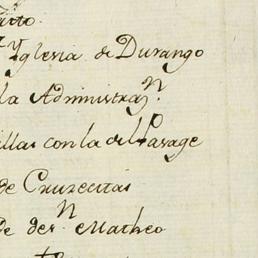 Yglesia de Durango
la Administraⁿ.
illas con la del Parage
de Cruzecitas
de de Sⁿ Matheo